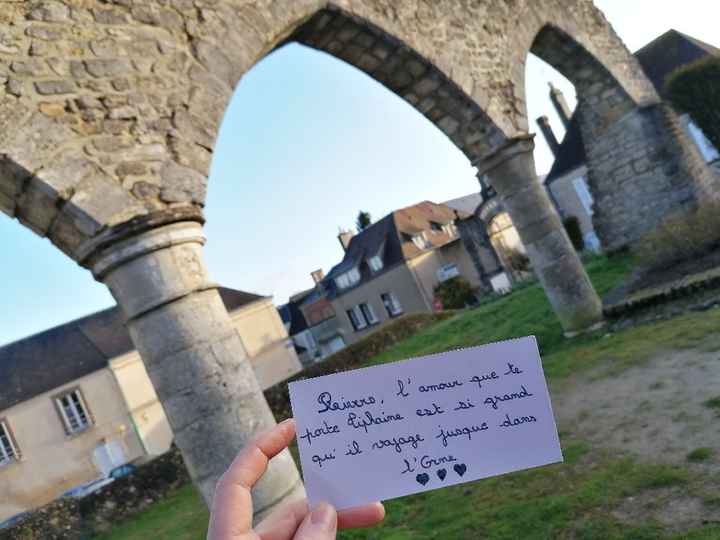 Pierro, l'amour que te
porte Tiphaine est si grand
qu'il voyage jusque dans
l'Orne
♥♥♥